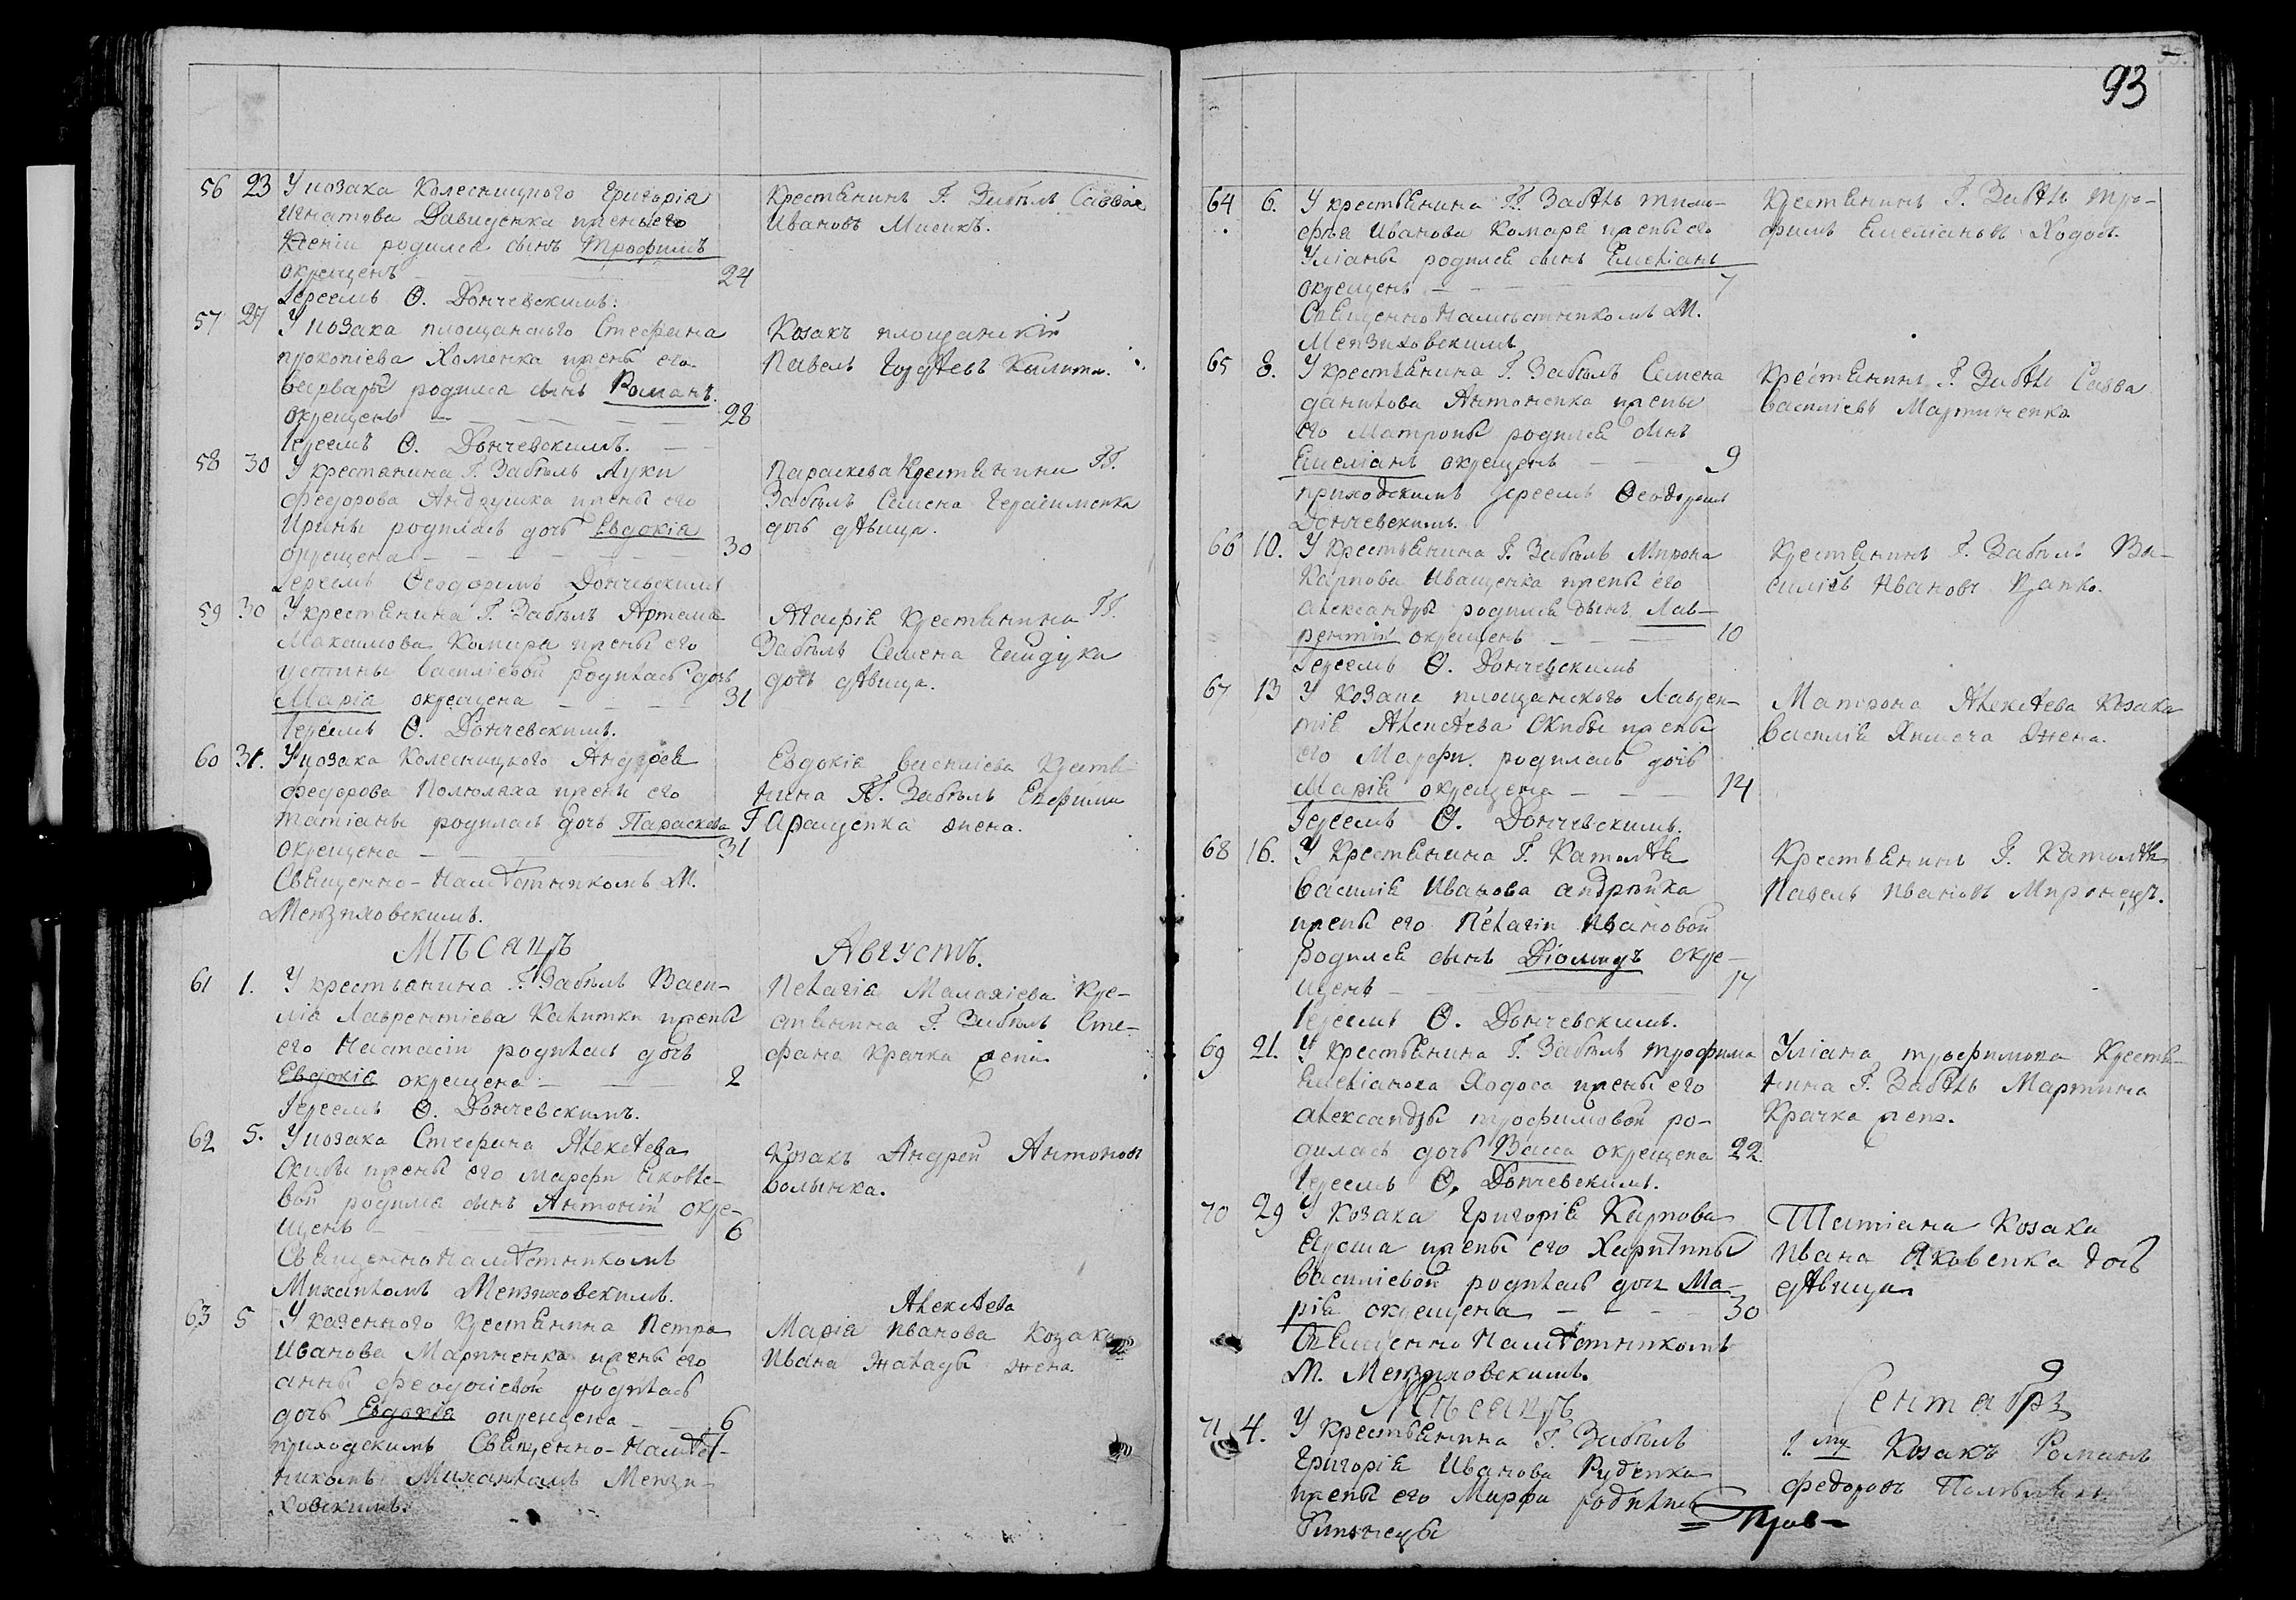 93
56 23 У козака Колесницкого Григорія
Игнатова Давиденка жены его
Ксеніи родился сынъ Трофимъ
окрещенъ 24
Іереемъ Ѳ. Дончевскимъ.
Крестьянинъ Г. Забѣлъ Савва
Ивановъ Мисикъ.
57 27 У козака площанского Стефана
прокопіева Хоменка жены его
варвары родился сынъ Романъ.
окрещенъ 28
Іереемъ Ѳ. Дончевскимъ.
Козакъ площанскій
Павелъ
58 30 У крестянина Г. Забѣлъ Луки
федорова Андрушка жены его
Ирины родилась дочь Евдокія
окрещена 30
Іереемъ Ѳеодоромъ Дончевскимъ
Параскева Крестянина ГГ.
Забѣлъ Семена Герасименка
дочь дѣвица.
59 30 У крестянина Г. Забѣлъ Артема
Максимова Комара жены его
устины василіевой родилась дочь
Марія окрещена 31
Іереемъ Ѳ. Дончевскимъ.
Агафія Крестянина ГГ.
Забѣлъ Семена Гайдуки
дочь дѣвица.
60 31. У козака Колесницкого Андрея
федорова Полюляха жены его
татіаны родилась дочь Параскева
окрещена 31
Священно-Намѣстникомъ М.
Мензиховскимъ.
Евдокія василіева Крестя-
нина ГГ. Забѣлъ Евфима
Гаращенка жена.
Мѣсяцъ Августъ.
61 1. У крестьянина Г. Забѣлъ Васи-
лія Лаврентіева Калитки жены
его Настасіи родилась дочь
Евдокія окрещена 2
Іереемъ Ѳ. Дончевскимъ.
Пелагія Малахіева Кре-
стянина Г. Забѣлъ Сте-
фана Крачка жена.
62 5. У козака Стефана Алексѣева
Скибы жены его марфы Яковле-
вой родился сынъ Антоній окре-
щенъ 6
Священно Намѣстникомъ
Михаиломъ Мензиховскимъ.
Козакъ Андрей Антоновъ
волынка.
63 5 У казенного Крестянина Петра
Иванова Мариненка жены его
анны феодосіевой родилась
дочь Евдокія окрещена 6
приходскимъ Священно-Намѣст-
никомъ Михаиломъ Мензи-
ховскимъ.
Алексѣева
Марія Иванова Козака
Ивана жалады жена.
64 6. У крестьянина ГГ. Забѣлъ тимо-
фѣя Иванова Комара жены его
Уліаны родился сынъ Емеліанъ
окрещенъ 7
Священно Намѣстникомъ М.
Мензиховскимъ
Крестянинъ Г. Забѣлъ тро-
фимъ Емеліановъ Ходосъ.
65 8. У крестьянина Г. Забѣлъ Семена
данилова Антоненка жены
его Матроны родился сынъ
Емеліанъ окрещенъ 9
приходскимъ Іереемъ Ѳеодоромъ
Дончевскимъ.
Крестянинъ Г. Забѣлъ Савва
василіевъ Мартиненко.
66 10. У Крестьянина Г. Забѣлъ Мирона
Карпова Иващенка жены его
александры родился сынъ Лав-
рентій окрещенъ 10
Іереемъ Ѳ. Дончевскимъ
Крестянинъ Г. Забѣлъ Ва-
силій Ивановъ Цапко.
67 13 У Козака площанского Лаврен-
тія Алексѣева Скибы жены
его Марфы родилась дочь
Марія окрещена 14
Іереемъ Ѳ. Дончевскимъ.
Матрона Алексѣева Козака
василія жена.
68 16. У Крестянина Г. Католѣя
василія Иванова андрѣйка
жены его Пелагіи Ивановой
родился сынъ Діомидъ окре-
щенъ 17
Іереемъ Ѳ. Дончевскимъ.
Крестьянинъ Г. Католѣя
Павелъ Ивановъ Миронецъ.
69 21. У Крестьянина Г. Забѣлъ трофима
Емеліанова Ходоса жены его
александры трофимовой ро-
дилась дочь Васса окрещена 22.
Іереемъ Ѳ. Дончевскимъ.
Уліана трофимова Крестя-
нина Г. Забѣлъ Мартина
Крачка жена.
70 29 У Козака Григорія Карпова
Яроша жены его Харитины
василіевой родилась дочь Ма-
рія окрещена 30
Священно Намѣстникомъ
М. Мензиховскимъ.
Татіана Козака
Ивана Яковенка дочь
дѣвица
Мѣсяцъ Сентябрь
71 4. У Крестьянина Г. Забѣлъ
Григорія Иванова Руденка
жены его Марфы родились
близнецы
1. му Козакъ Романъ
федоровъ